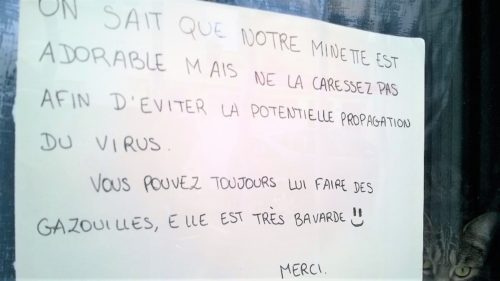 ON SAIT QUE NOTRE MINETTE EST
ADORABLE MAIS NE LA CARESSEZ PAS
AFIN D'EVITER LA POTENTIELLE PROPAGATION
DU VIRUS.
VOUS POUVEZ TOUJOURS LUI FAIRE DES
GAZOUILLES, ELLE EST TRÈS BAVARDE
MERCI.